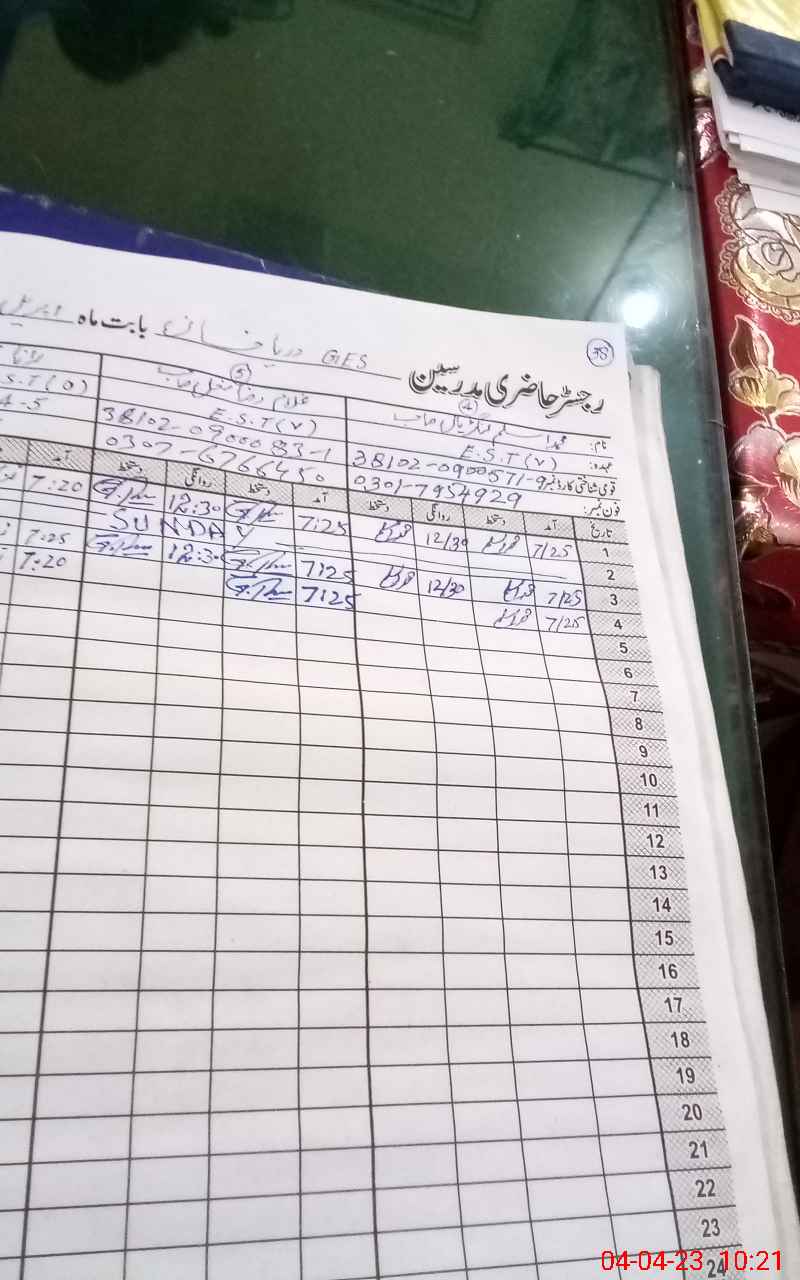 38
رجسٹر حاضری مدرسین GES دریا خان بابت ماہ اپریل
نام: محمد اسلم صاحب
غلام رضا صاحب
عہدہ: E.S.T (V)
E.S.T (V)
S.T (O)
قومی شناختی کارڈ نمبر: 38102-0900571-9
38102-0900083-1
4-5
فون نمبر: 0301-7954929
0307-6766450
تاریخ آمد دستخط روانگی دستخط آمد دستخط روانگی دستخط آمد
1 7/25 12/30 7:25 12:30 7:20
2 SUNDAY
3 7/25 12/30 7:25 12:30 7:25
4 7/25 7:25 7:20
5
6
7
8
9
10
11
12
13
14
15
16
17
18
19
20
21
22
23
24
04-04-23 10:21